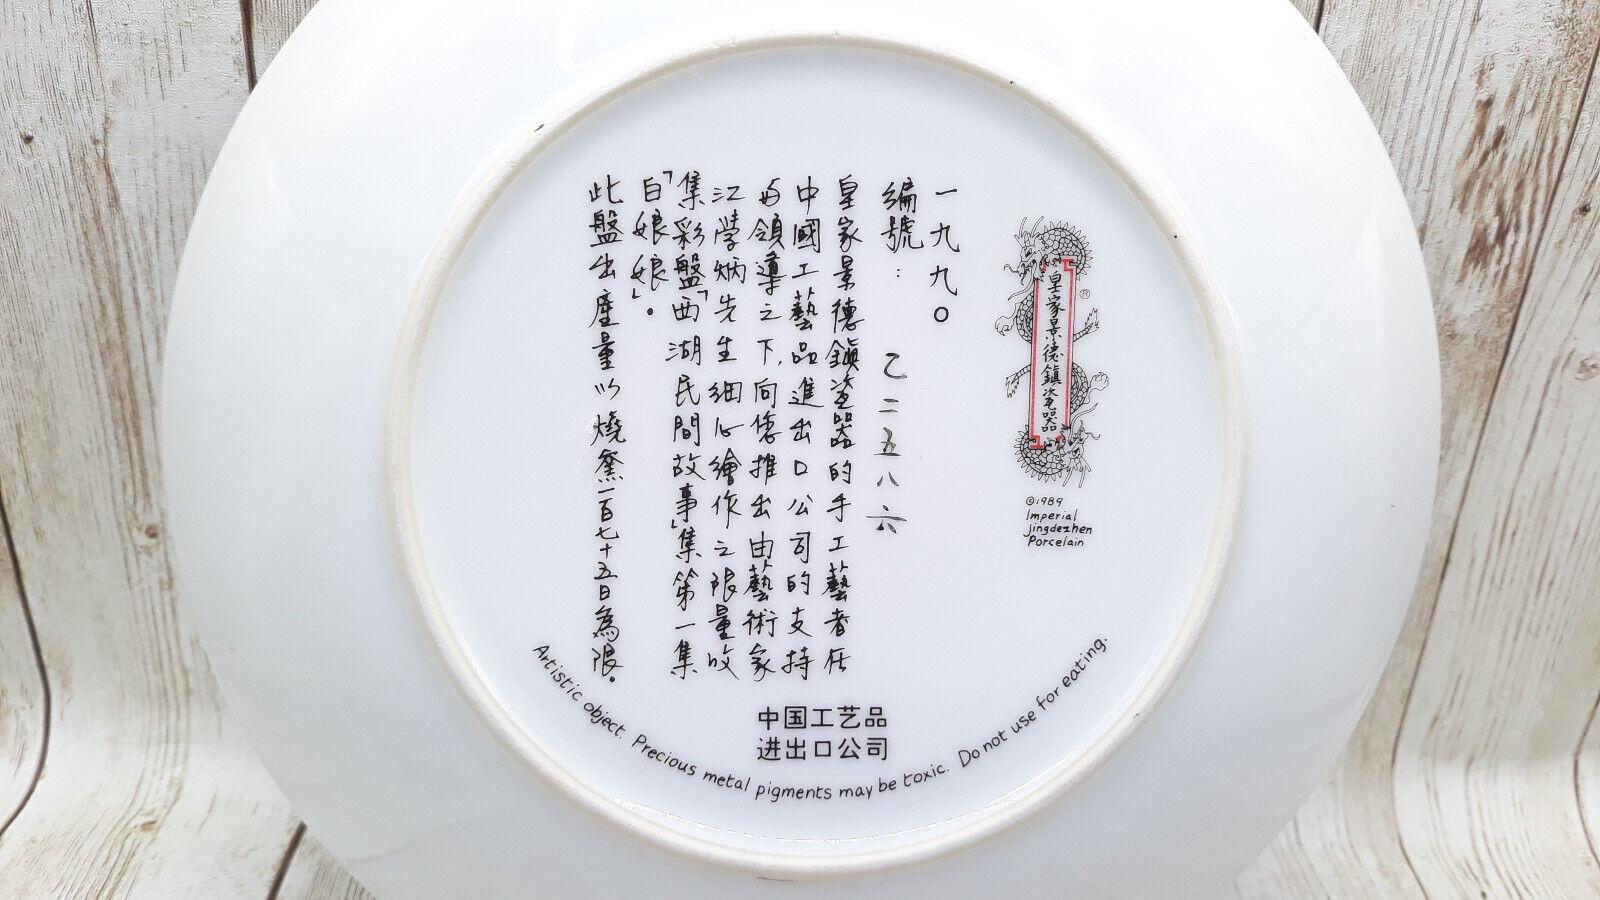 皇家景德鎮瓷器
®
©1989
Imperial
Jingdezhen
Porcelain
一九九〇
編號：乙二五八六
皇家景德鎮瓷器的手工藝者在
中國工藝品進出口公司的支持
与領導之下,向您推出由藝術家
江學炳先生細心繪作之限量收
集彩盤「西湖民間故事」集第一集
「白娘娘」。
此盤出產量以燒窯一百七十五日為限。
中国工艺品
进出口公司
Artistic object. Precious metal pigments may be toxic. Do not use for eating.